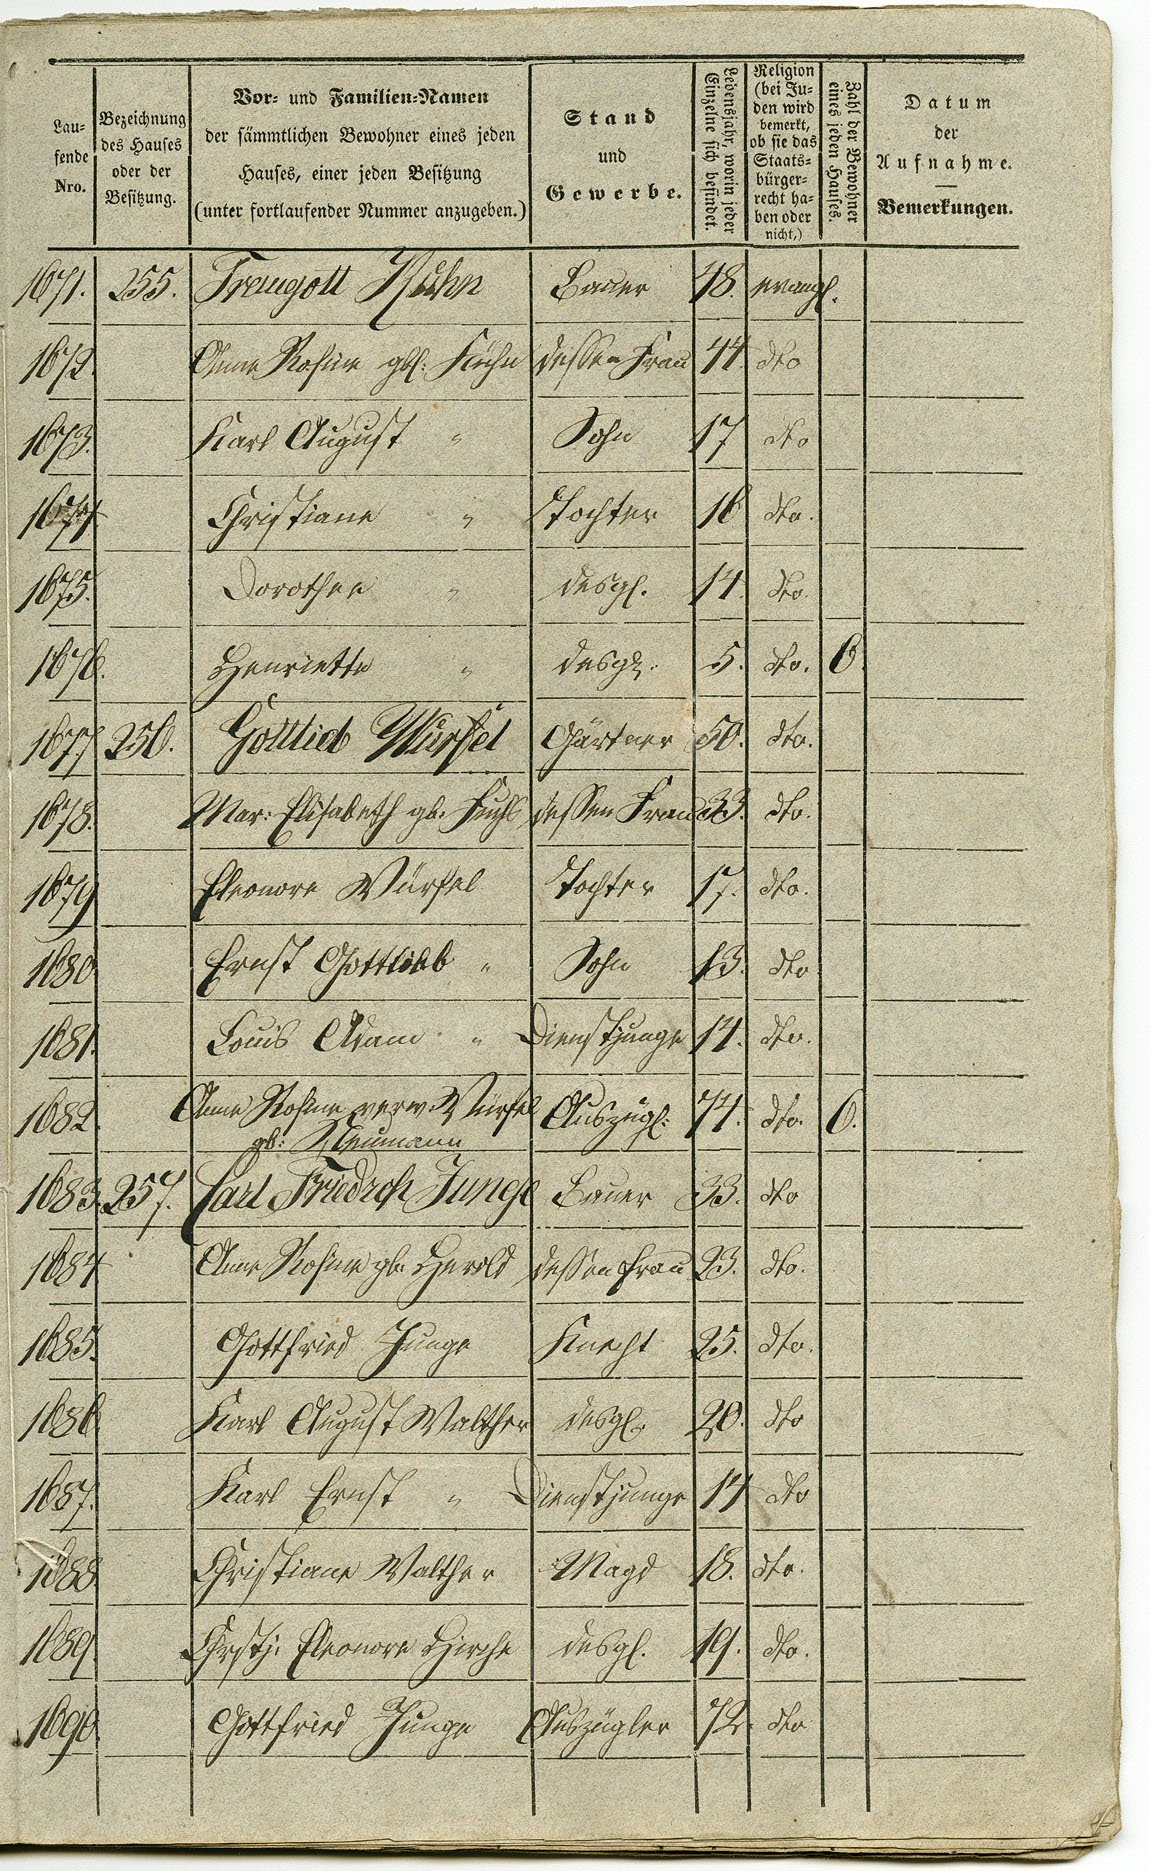 Lau-
fende
Nro.
Bezeichnung
des Hauses
oder der
Besitzung.
Vor- und Familien-Namen
der sämmtlichen Bewohner eines jeden
Hauses, einer jeden Besitzung
(unter fortlaufender Nummer anzugeben.)
Stand
und
Gewerbe.
Lebensjahr, worin jeder
Einzelne sich befindet.
Religion
(bei Ju-
den wird
bemerkt,
ob sie das
Staats-
bürger-
recht ha-
ben oder
nicht,)
Zahl der Bewohner
eines jeden Hauses.
Datum
der
Aufnahme.
Bemerkungen.
1671. 255. Treugott Kuhn Bauer 48. evangl.
1672. Anne Rosine gbl: Kuhn dessen Frau 44. dto
1673. Karl August " Sohn 17 dto
1674 Christiane " Tochter 16 dto.
1675. Dorothee " desgl. 14. dto.
1676. Henriette " desgl. 5. dto. 6.
1677 256. Gottlieb Würfel Gärtner 50. dto.
1678. Mar: Elisabeth gb. Fuchs dessen Frau 33. dto.
1679 Eleonore Würfel Tochter 17. dto.
1680 Ernst Gottlieb " Sohn 13. dto
1681. Louis Adam " Dienstjunge 14. dto.
1682. Anne Rosine verw. Würfel Auszügl: 74. dto. 6.
gb: Neumann
1683. 257. Carl Friedrch Junge Bauer 33. dto
1684 Anne Rosine gb. Herold dessen Frau 23. dto.
1685. Gottfried Junge Knecht 25. dto.
1686. Karl August Walther desgl. 20. dto
1687. Karl Ernst " Dienstjunge 14 dto
1688. Christiane Walther Magd 18. dto.
1689. Eleonore Hirche desgl. 19. dto.
1690. Gottfried Junge Auszügler 72. dto